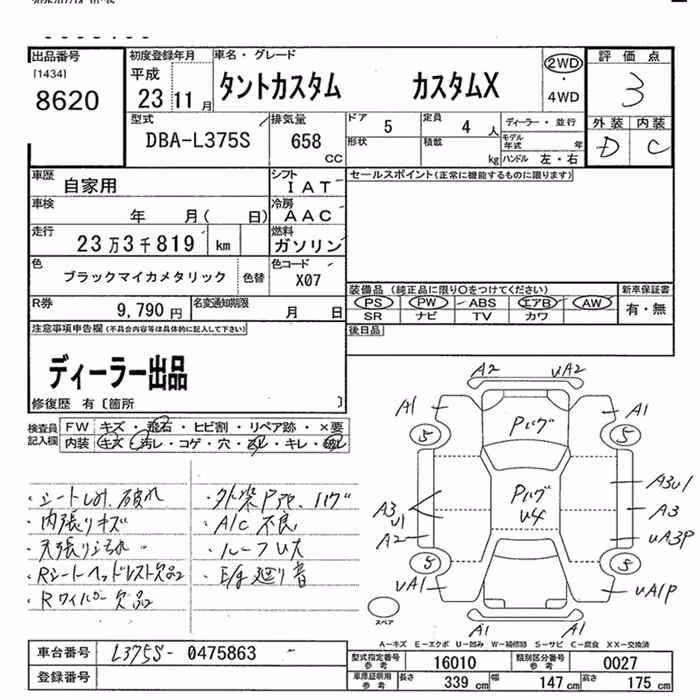 出品番号
[1434]
8620
初度登録年月
平成
23 11 月
車名・グレード
タントカスタム カスタムX
2WD
・
4WD
評価点
3
外装 内装
D C
型式
DBA-L375S
排気量
658
CC
ドア
5
定員
4 人
形状
積載
kg
ディーラー・並行
モデル年式 年
ハンドル 左・右
車歴
自家用
シフト
IAT
車検
年 月( 日)
冷房
AAC
走行
23万3千819 km
燃料
ガソリン
色
ブラックマイカメタリック
色替
色コード
X07
R券
9,790 円
名変通知期限
月 日
セールスポイント(正常に機能するものに限ります)
装備品 (純正品に限り○をつけてください)
PS PW ABS エアB AW
SR ナビ TV カワ
新車保証書
有・無
後日品
注意事項申告欄(不具合内容等は具体的に記入して下さい)
ディーラー出品
修復歴 有〔箇所 〕
検査員記入欄
FW キズ・飛石・ヒビ割・リペア跡・×要
内装 キズ・汚レ・コゲ・穴・キレ・
・シートしわ、破れ
・内張りキズ
・天張り汚れ
・Rシートヘッドレスト欠品
・Rワイパー欠品
・外装Pハゲ
・A/C不良
・ルーフU大
・E/g廻り音
A2 UA2
A1 A1
5 5
Pハゲ
Pハゲ
U4
A3
U1
A2
A3U1
A3
UA3P
5 5
UA1 UA1P
A1 A1
スペア
A-キズ E-エクボ U-凹み W-補修跡 S-サビ C-腐食 XX-交換済
車台番号
L375S- 0475863
登録番号
型式指定番号
参考
16010
類別区分番号
参考
0027
車庫証明用
参考
長さ 339 cm 幅 147 cm 高さ 175 cm